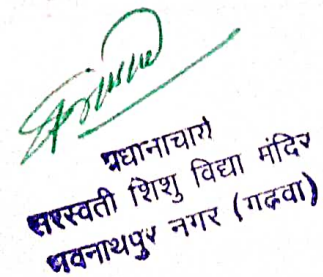 प्रधानाचार्य
सरस्वती शिशु विद्या मंदिर
भवनाथपुर नगर (गढ़वा)